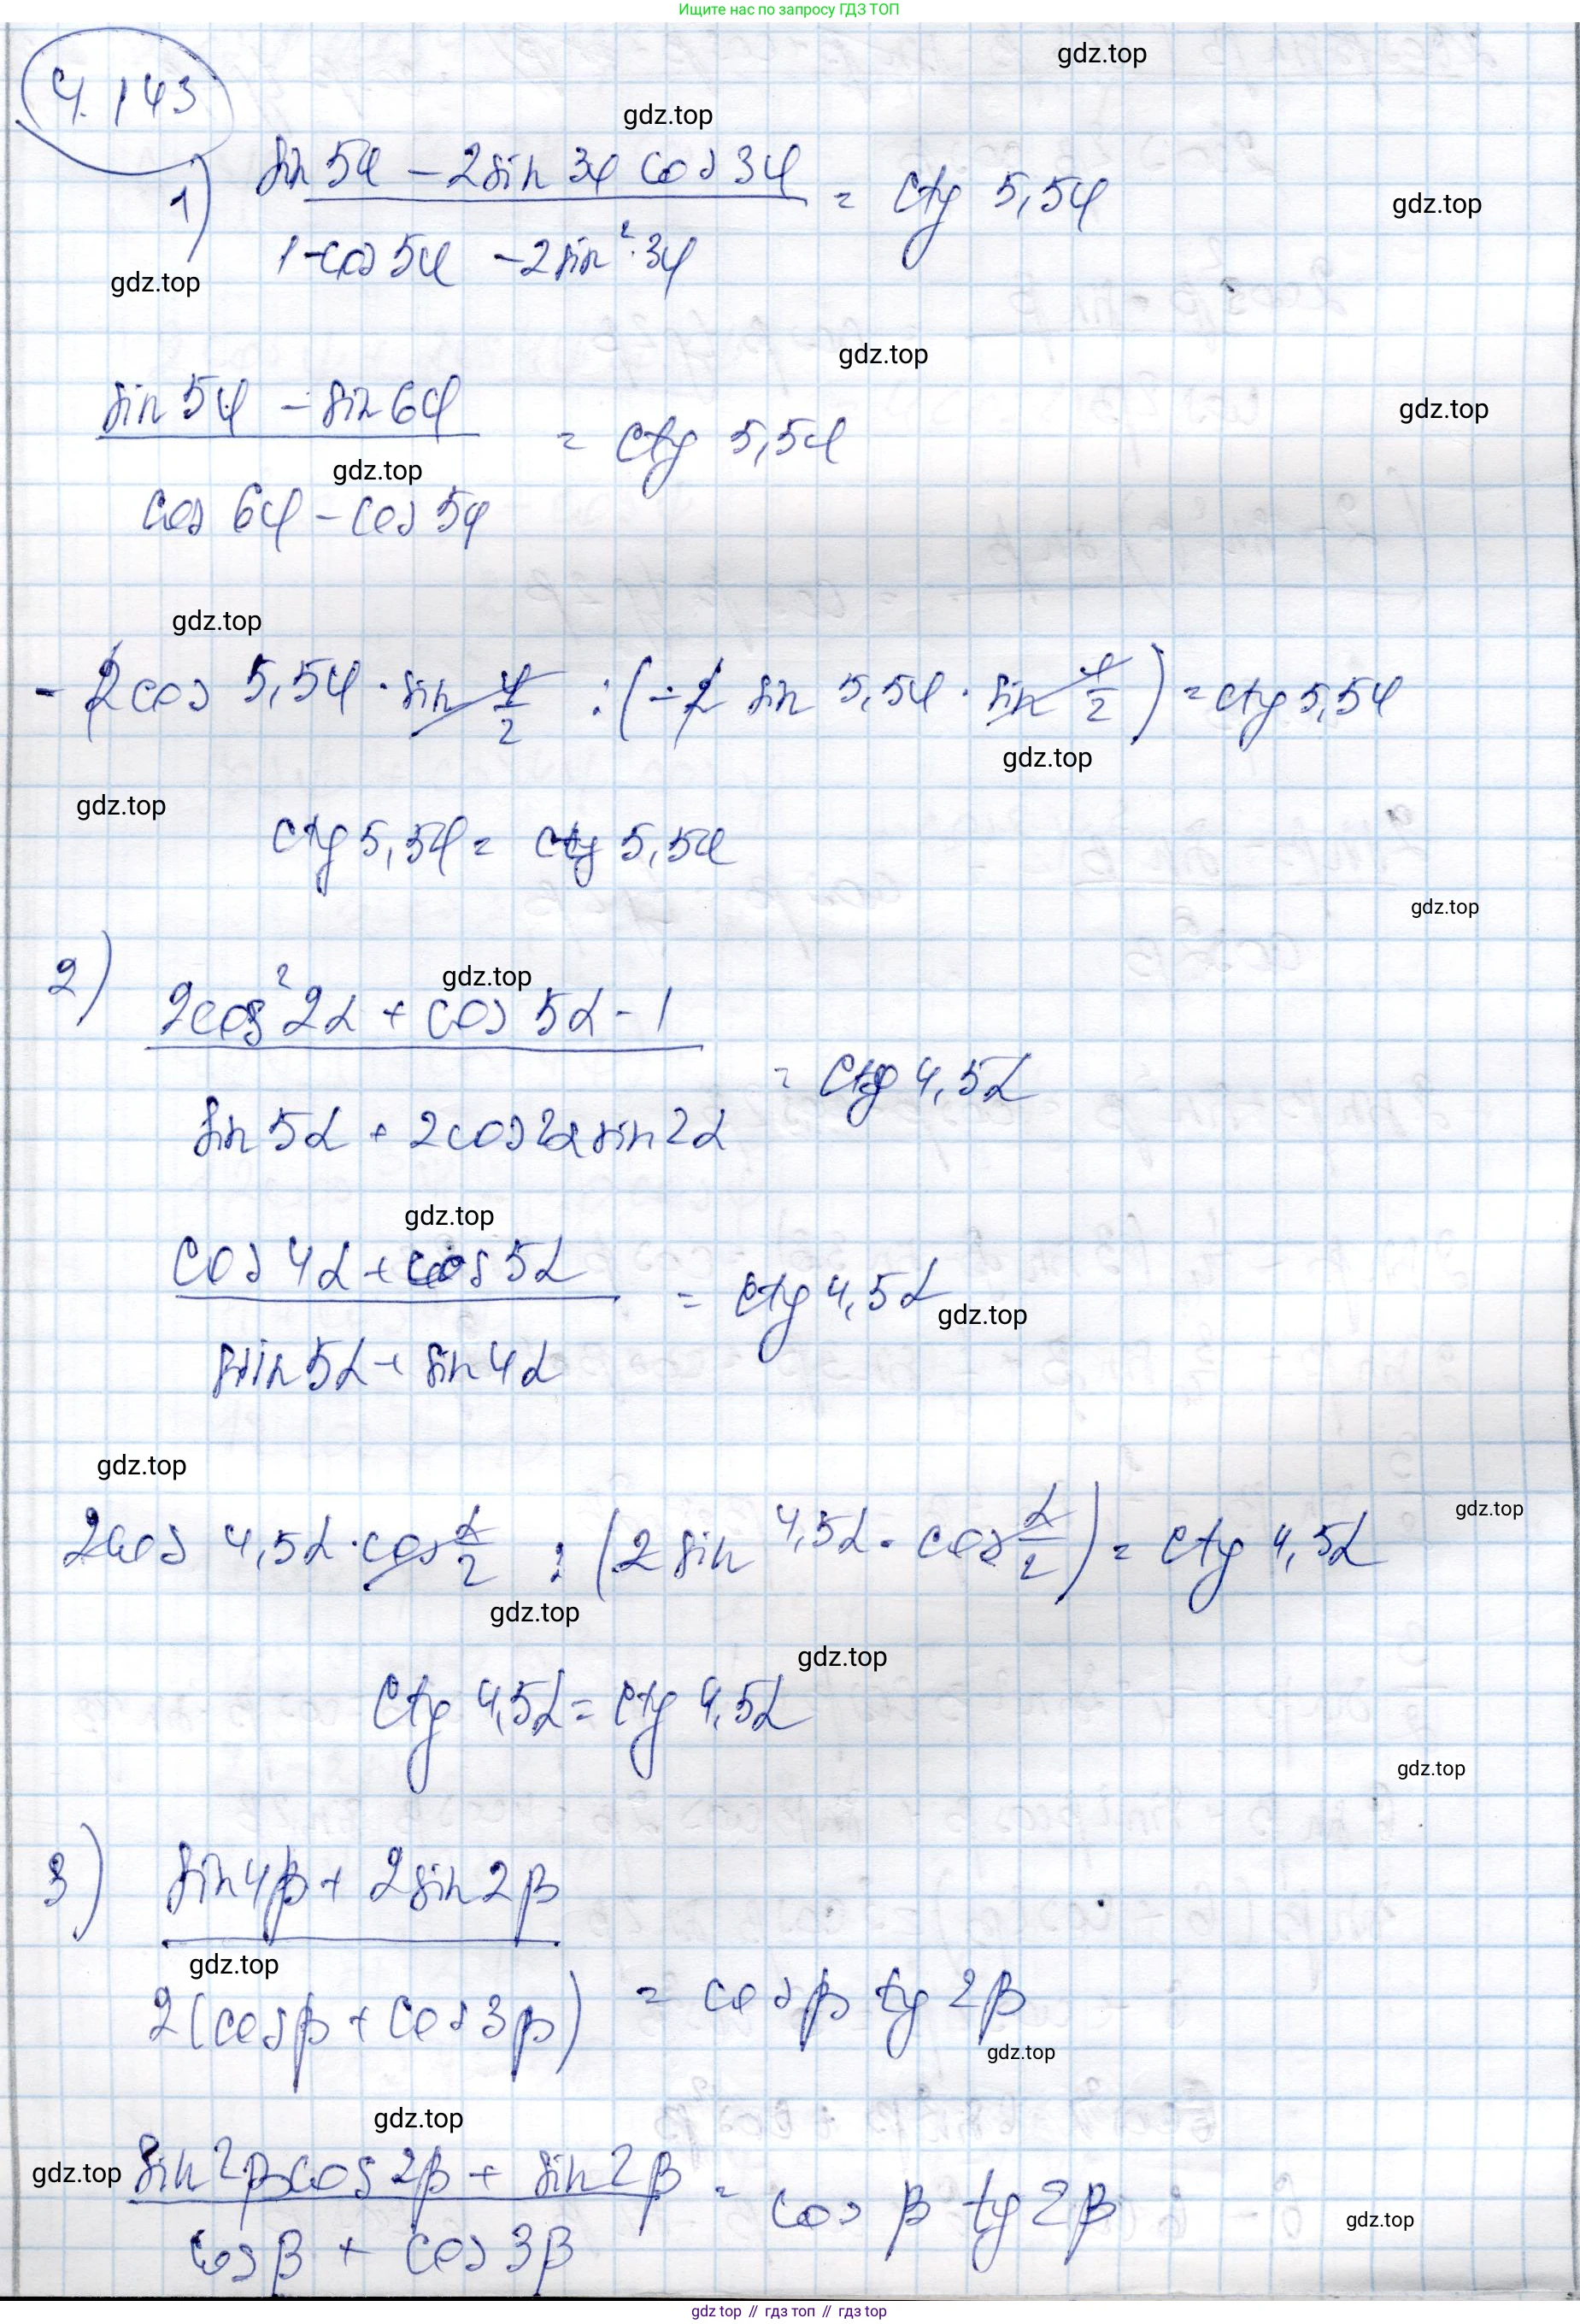 Ищите нас по запросу ГДЗ ТОП
gdz.top
4.143
gdz.top
1) (sin 5φ - 2sin 3φ cos 3φ) / (1 - cos 5φ - 2sin² 3φ) = ctg 5,5φ
gdz.top
gdz.top
gdz.top
(sin 5φ - sin 6φ) / (cos 6φ - cos 5φ) = ctg 5,5φ
gdz.top
gdz.top
gdz.top
- 2cos 5,5φ · sin φ/2 : (-2 sin 5,5φ · sin φ/2) = ctg 5,5φ
gdz.top
gdz.top
ctg 5,5φ = ctg 5,5φ
gdz.top
2) (2cos² 2α + cos 5α - 1) / (sin 5α + 2cos 2α sin 2α) = ctg 4,5α
gdz.top
gdz.top
(cos 4α + cos 5α) / (sin 5α + sin 4α) = ctg 4,5α
gdz.top
gdz.top
gdz.top
2cos 4,5α · cos α/2 : (2 sin 4,5α · cos α/2) = ctg 4,5α
gdz.top
gdz.top
ctg 4,5α = ctg 4,5α
gdz.top
3) (sin 4β + 2sin 2β) / (2(cos β + cos 3β)) = cos β tg 2β
gdz.top
gdz.top
gdz.top
gdz.top
(sin 2β cos 2β + sin 2β) / (cos β + cos 3β) = cos β tg 2β
gdz.top
gdz top // гдз топ // gdz.top